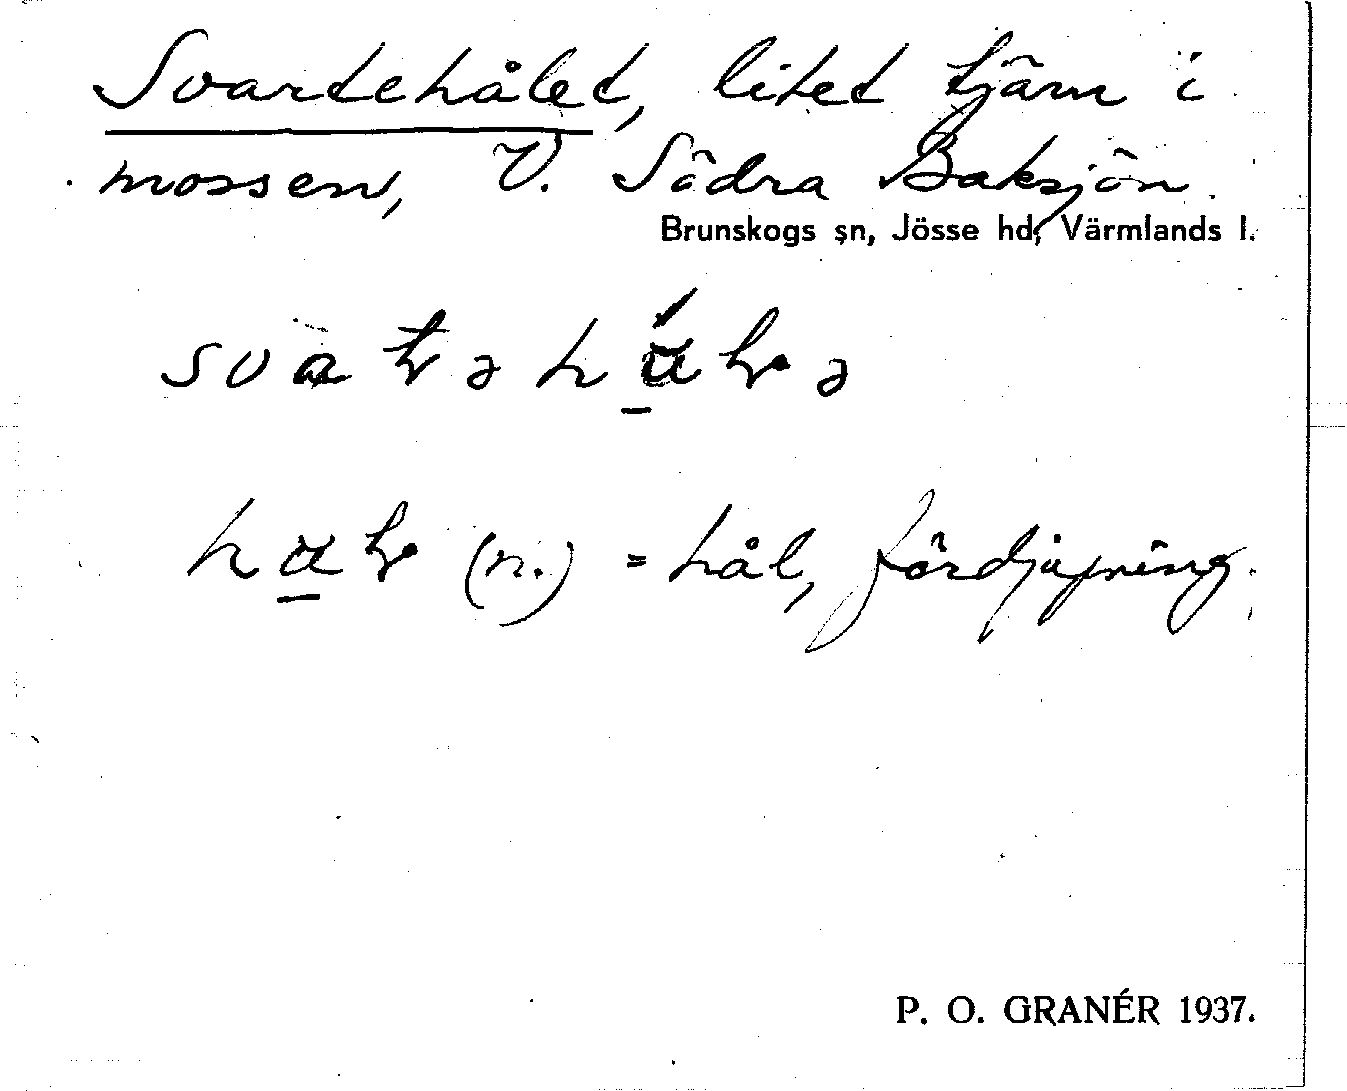 Svartehålet, litet tjärn i
mossen, V. Södra Baksjön.
Brunskogs sn, Jösse hd, Värmlands l.
(n.) = hål, fördjupning.
P. O. GRANÉR 1937.